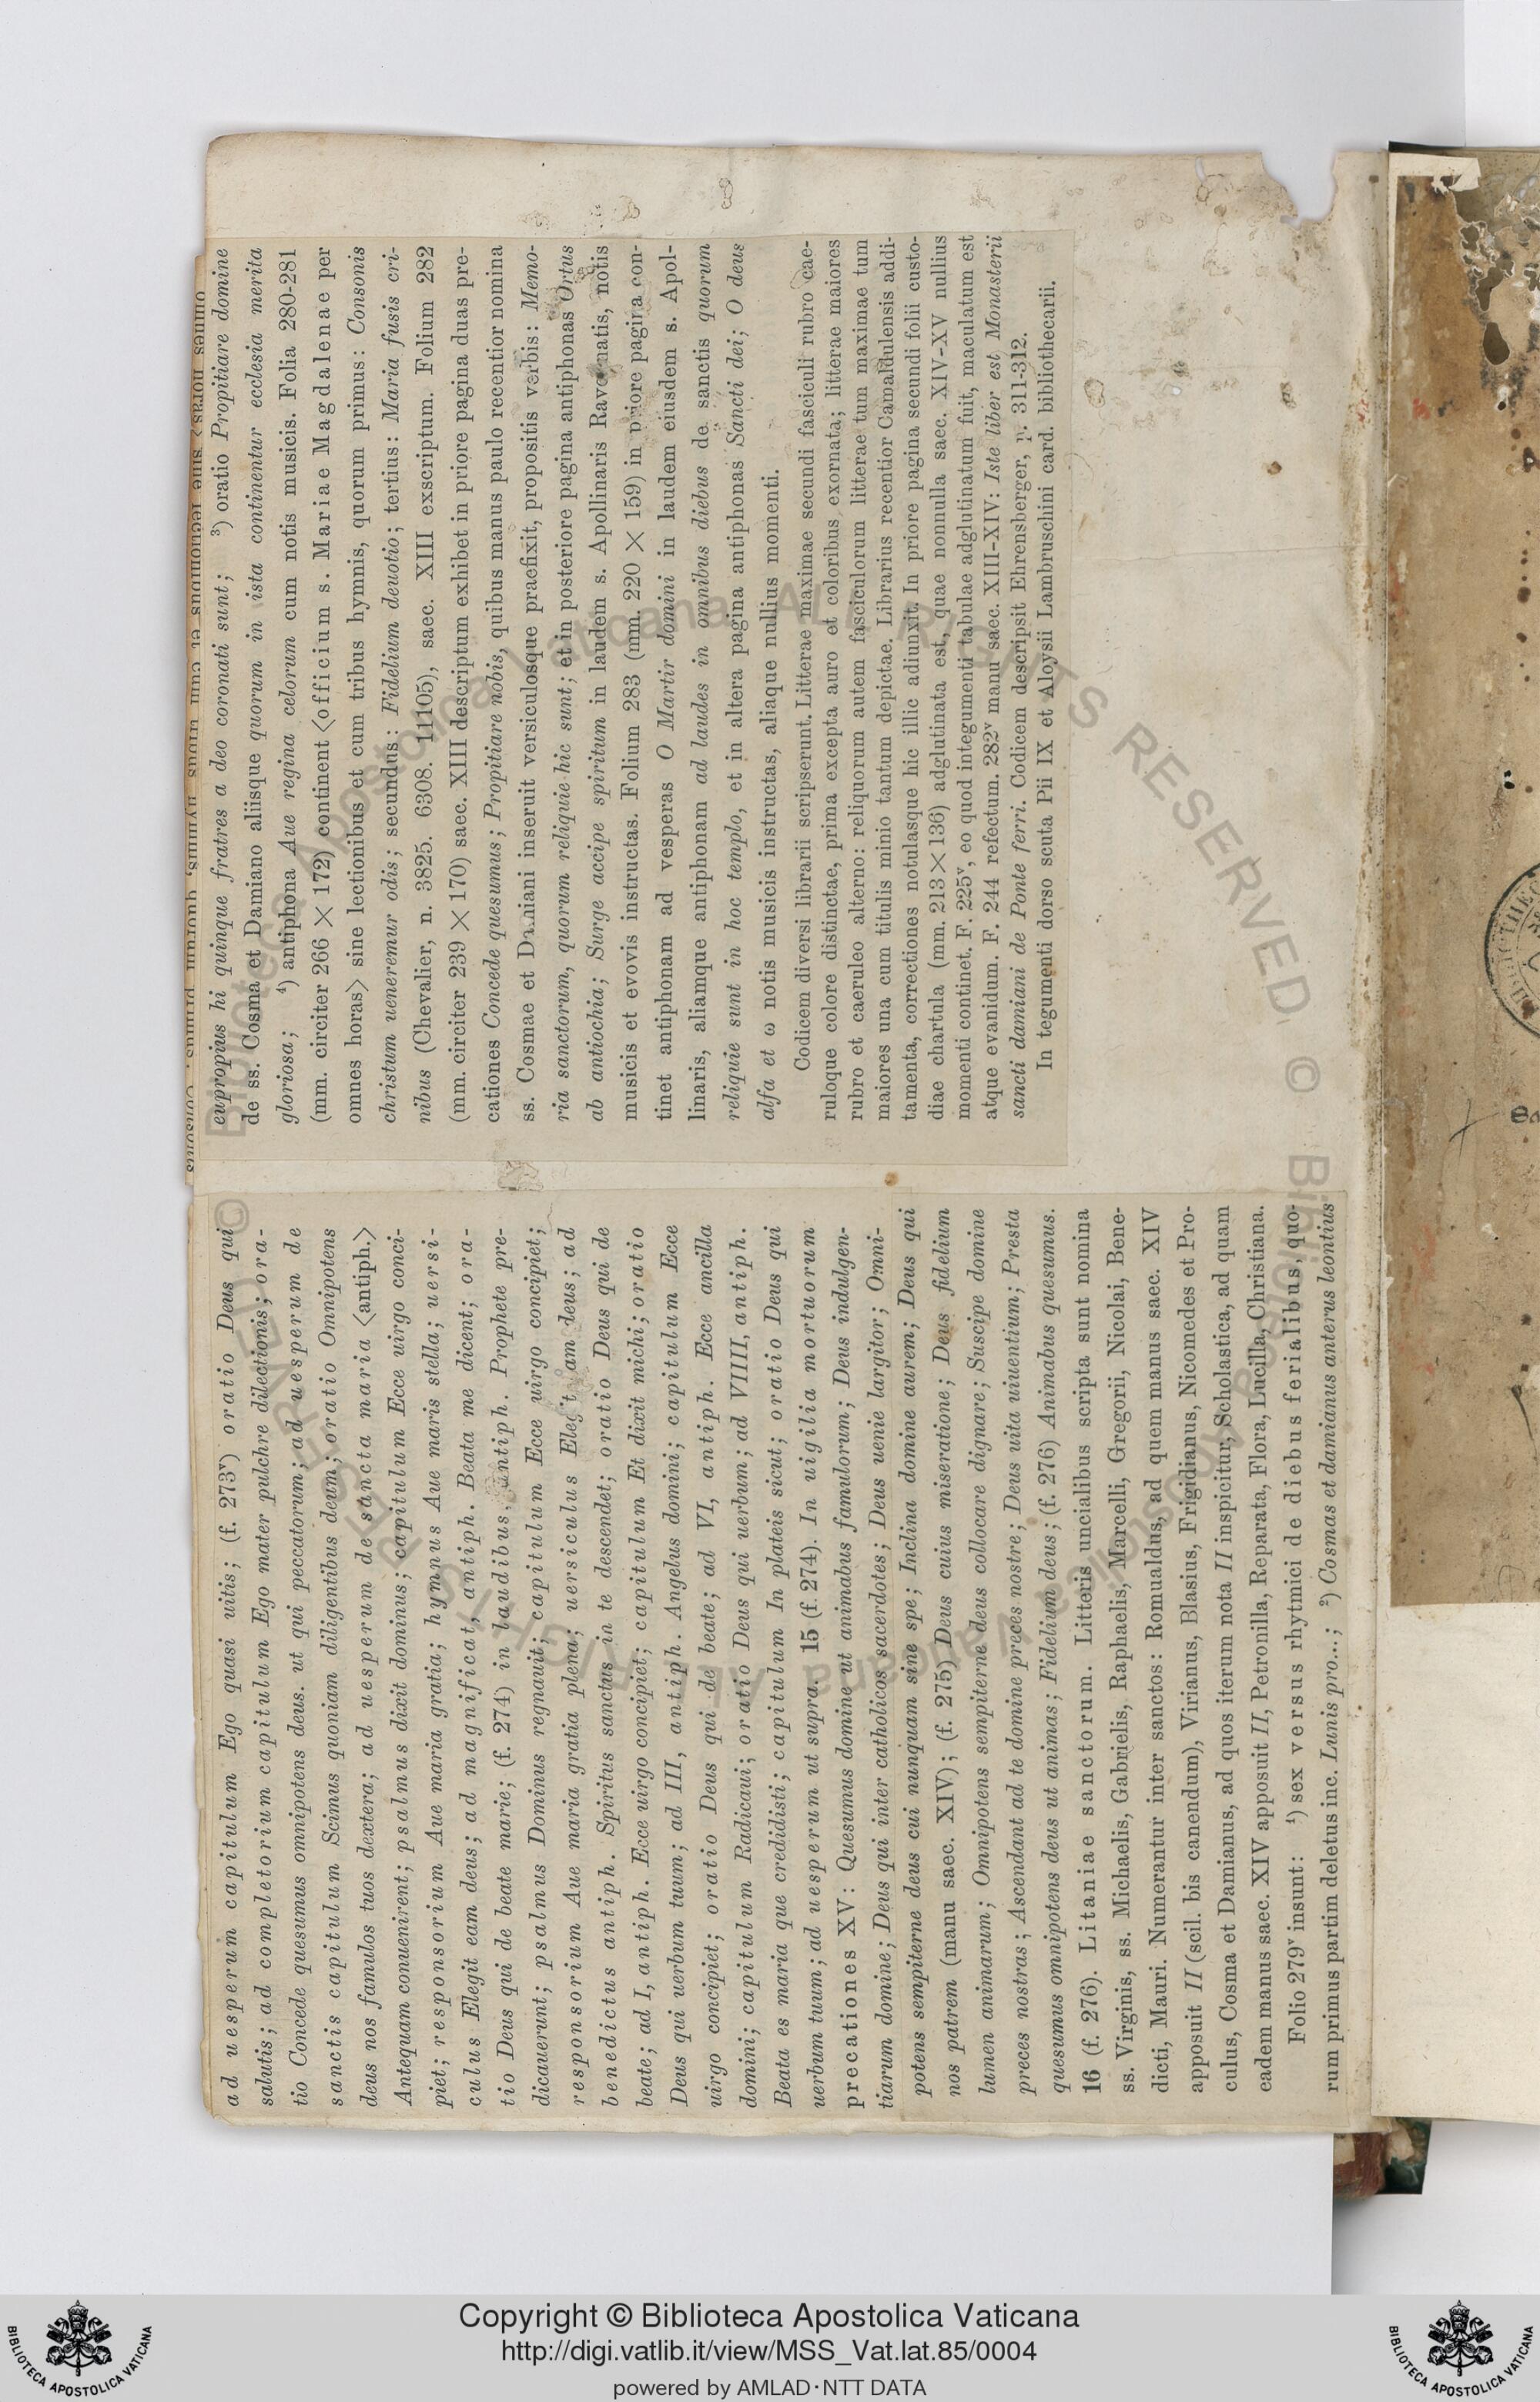 ad uesperum capitulum Ego quasi uitis; (f. 273ᵛ) oratio Deus qui
salutis; ad completorium capitulum Ego mater pulchre dilectionis; ora-
tio Concede quesumus omnipotens deus. ut qui peccatorum; ad uesperum de
sanctis capitulum Scimus quoniam diligentibus deum; oratio Omnipotens
deus nos famulos tuos dextera; ad uesperum de sancta maria <antiph.>
Antequam conuenirent; psalmus dixit dominus; capitulum Ecce uirgo conci-
piet; responsorium Aue maria gratia; hymnus Aue maris stella; uersi-
culus Elegit eam deus; ad magnificat, antiph. Beata me dicent; ora-
tio Deus qui de beate marie; (f. 274) in laudibus, antiph. Prophete pre-
dicauerunt; psalmus Dominus regnauit; capitulum Ecce uirgo concipiet;
responsorium Aue maria gratia plena; uersiculus Elegit eam deus; ad
benedictus antiph. Spiritus sanctus in te descendet; oratio Deus qui de
beate; ad I, antiph. Ecce uirgo concipiet; capitulum Et dixit michi; oratio
Deus qui uerbum tuum; ad III, antiph. Angelus domini; capitulum Ecce
uirgo concipiet; oratio Deus qui de beate; ad VI, antiph. Ecce ancilla
domini; capitulum Radicaui; oratio Deus qui uerbum; ad VIIII, antiph.
Beata es maria que credidisti; capitulum In plateis sicut; oratio Deus qui
uerbum tuum; ad uesperum ut supra. 15 (f. 274). In uigilia mortuorum
precationes XV: Quesumus domine ut animabus famulorum; Deus indulgen-
tiarum domine; Deus qui inter catholicos sacerdotes; Deus uenie largitor; Omni-
potens sempiterne deus cui nunquam sine spe; Inclina domine aurem; Deus qui
nos patrem (manu saec. XIV); (f. 275) Deus cuius miseratione; Deus fidelium
lumen animarum; Omnipotens sempiterne deus collocare dignare; Suscipe domine
preces nostras; Ascendant ad te domine preces nostre; Deus uita uiuentium; Presta
quesumus omnipotens deus ut animas; Fidelium deus; (f. 276) Animabus quesumus.
16 (f. 276). Litaniae sanctorum. Litteris uncialibus scripta sunt nomina
ss. Virginis, ss. Michaelis, Gabrielis, Raphaelis, Marcelli, Gregorii, Nicolai, Bene-
dicti, Mauri. Numerantur inter sanctos: Romualdus, ad quem manus saec. XIV
apposuit II (scil. bis canendum), Virianus, Blasius, Frigidianus, Nicomedes et Pro-
culus, Cosma et Damianus, ad quos iterum nota II inspicitur, Scholastica, ad quam
eadem manus saec. XIV apposuit II, Petronilla, Reparata, Flora, Lucilla, Christiana.
Folio 279ᵛ insunt: ¹) sex versus rhytmici de diebus ferialibus, quo-
rum primus partim deletus inc. Lunis pro...; ²) Cosmas et damianus anterus leontius
eupropius hi quinque fratres a deo coronati sunt; ³) oratio Propitiare domine
de ss. Cosma et Damiano aliisque quorum in ista continentur ecclesia merita
gloriosa; ⁴) antiphona Aue regina celorum cum notis musicis. Folia 280-281
(mm. circiter 266 × 172) continent <officium s. Mariae Magdalenae per
omnes horas> sine lectionibus et cum tribus hymnis, quorum primus: Consonis
christum ueneremur odis; secundus: Fidelium deuotio; tertius: Maria fusis cri-
nibus (Chevalier, n. 3825. 6308. 11105), saec. XIII exscriptum. Folium 282
(mm. circiter 239 × 170) saec. XIII descriptum exhibet in priore pagina duas pre-
cationes Concede quesumus; Propitiare nobis, quibus manus paulo recentior nomina
ss. Cosmae et Damiani inseruit versiculosque praefixit, propositis verbis: Memo-
ria sanctorum, quorum reliquie hic sunt; et in posteriore pagina antiphonas Ortus
ab antiochia; Surge accipe spiritum in laudem s. Apollinaris Ravennatis, notis
musicis et evovis instructas. Folium 283 (mm. 220 × 159) in priore pagina con-
tinet antiphonam ad vesperas O Martir domini in laudem eiusdem s. Apol-
linaris, aliamque antiphonam ad laudes in omnibus diebus de sanctis quorum
reliquie sunt in hoc templo, et in altera pagina antiphonas Sancti dei; O deus
alfa et ω notis musicis instructas, aliaque nullius momenti.
Codicem diversi librarii scripserunt. Litterae maximae secundi fasciculi rubro cae-
ruloque colore distinctae, prima excepta auro et coloribus exornata; litterae maiores
rubro et caeruleo alterno: reliquorum autem fasciculorum litterae tum maximae tum
maiores una cum titulis minio tantum depictae. Librarius recentior Camaldulensis addi-
tamenta, correctiones notulasque hic illic adiunxit. In priore pagina secundi folii custo-
diae chartula (mm. 213×136) adglutinata est, quae nonnulla saec. XIV-XV nullius
momenti continet. F. 225ᵛ, eo quod integumenti tabulae adglutinatum fuit, maculatum est
atque evanidum. F. 244 refectum. 282ᵛ manu saec. XIII-XIV: Iste liber est Monasterii
sancti damiani de Ponte ferri. Codicem descripsit Ehrensberger, p. 311-312.
In tegumenti dorso scuta Pii IX et Aloysii Lambruschini card. bibliothecarii.
Copyright © Biblioteca Apostolica Vaticana
http://digi.vatlib.it/view/MSS_Vat.lat.85/0004
powered by AMLAD·NTT DATA
BIBLIOTECA APOSTOLICA VATICANA
BIBLIOTECA APOSTOLICA VATICANA